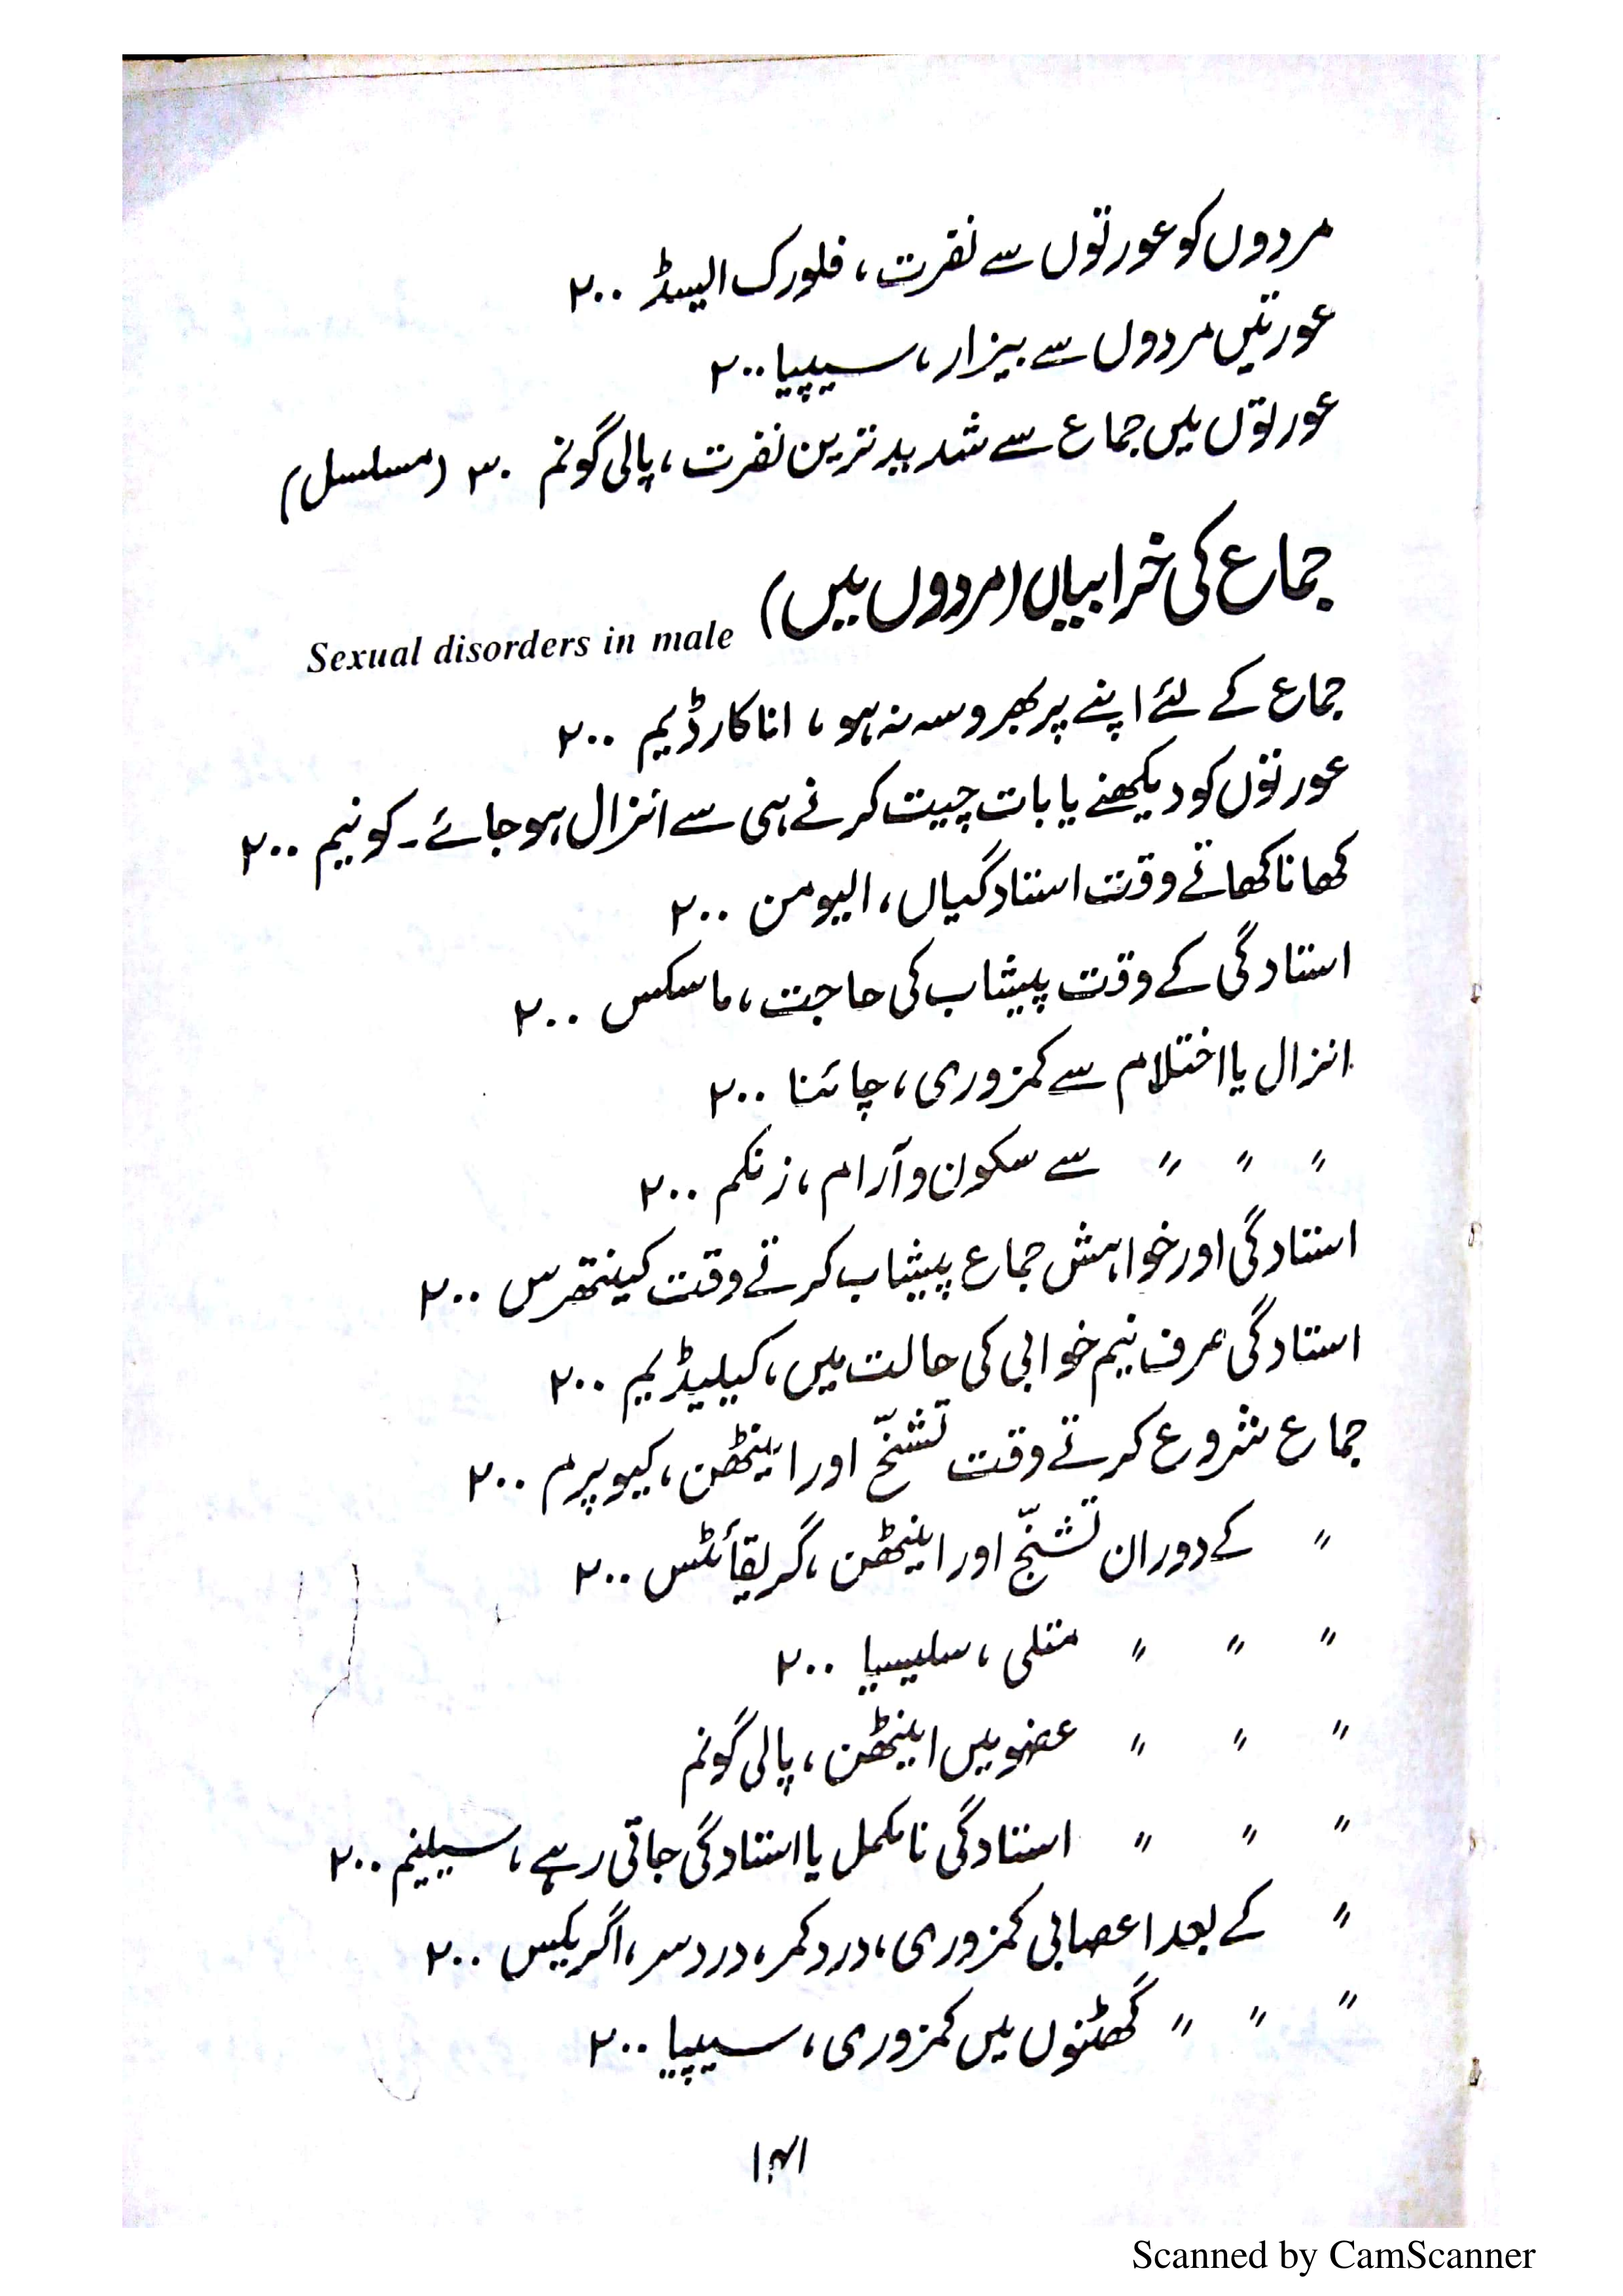 مردوں کو عورتوں سے نفرت ، فلورک ایسڈ ۲۰۰
عورتیں مردوں سے بیزار ، سیپیا ۲۰۰
عورتوں میں جماع سے شدید ترین نفرت ، پالی گونم ۳۰ (مسلسل)
جماع کی خرابیاں (مردوں میں) Sexual disorders in male
جماع کے لئے اپنے پر بھروسہ نہ ہو ، اناکارڈیم ۲۰۰
عورتوں کو دیکھنے یا بات چیت کرنے ہی سے انزال ہو جائے۔ کونیم ۲۰۰
کھانا کھاتے وقت استادگیاں ، الیومن ۲۰۰
استادگی کے وقت پیشاب کی حاجت ، ماسکس ۲۰۰
انزال یا اختلام سے کمزوری ، چائنا ۲۰۰
〃 〃 〃 سے سکون و آرام ، زنکم ۲۰۰
استادگی اور خواہش جماع پیشاب کرتے وقت کینتھرس ۲۰۰
استادگی صرف نیم خوابی کی حالت میں ، کیلیڈیم ۲۰۰
جماع شروع کرتے وقت تشنّج اور اینٹھن ، کیوپرم ۲۰۰
〃 کے دوران تشنّج اور اینٹھن ، گریفائٹس ۲۰۰
〃 〃 〃 متلی ، سلیسیا ۲۰۰
〃 〃 〃 عضو میں اینٹھن ، پالی گونم
〃 〃 〃 استادگی نامکمل یا استادگی جاتی رہے ، سیلینیم ۲۰۰
〃 کے بعد اعصابی کمزوری ، درد کمر ، درد سر ، اگریکس ۲۰۰
〃 〃 〃 گھٹنوں میں کمزوری ، سیپیا ۲۰۰
۱۴۱
Scanned by CamScanner